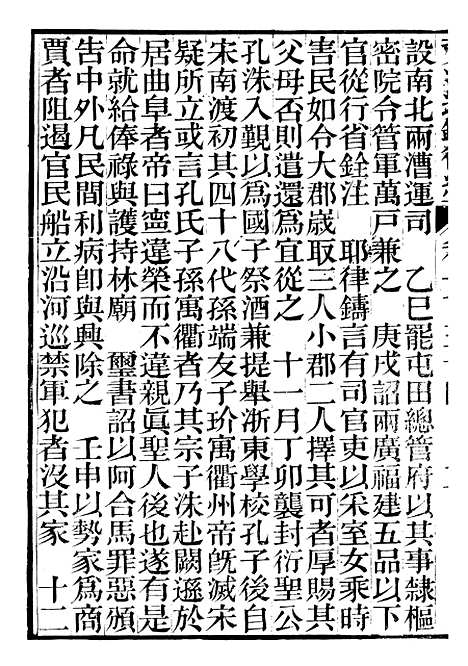 設南北兩漕運司　乙巳罷屯田總管府以其事隸樞
密院令管軍萬戸兼之　庚戌詔兩廣福建五品以下
官從行省銓注　耶律鑄言有司官吏以采室女乘時
害民如令大郡歲取三人小郡二人擇其可者厚賜其
父母否則遣還爲宜從之　十一月丁卯襲封衍聖公
孔洙入覲以爲國子祭酒兼提舉浙東學校孔子後自
宋南渡初其四十八代孫端友子玠寓衢州帝旣滅宋
疑所立或言孔氏子孫寓衢者乃其宗子洙赴闕遜於
居曲阜者帝曰寧違榮而不違親眞聖人後也遂有是
命就給俸祿與護持林廟　璽書詔以阿合馬罪惡頒
吿中外凡民間利病卽與興除之　壬申以勢家爲商
賈者阻遏官民船立沿河巡禁軍犯者沒其家　十二